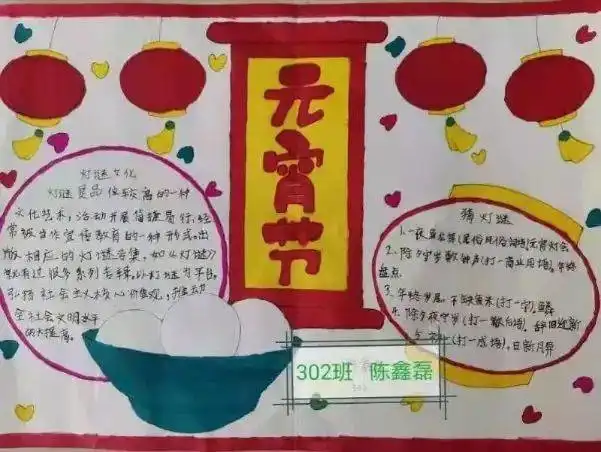 元宵节
灯谜文化
灯谜是品位较高的一种
文化艺术，活动开展简捷易行，经
常被当作宣传教育的一种形式。出
版相应的《灯谜专集，如《灯谜》
就有过很多系列专辑，以灯谜为平台，
弘扬社会主义核心价值观，推动
全社会文明水平
的大提高。
猜灯谜
元宵灯会
2、除夕守岁歌钟声(打一商业用语)。年终
盘点
3、年终岁尾，不缺鱼米(打一字)鳞
4、除夕夜守岁(打一歇后语)，辞旧迎新
(打一成语)。日新月异
302班 陈鑫磊